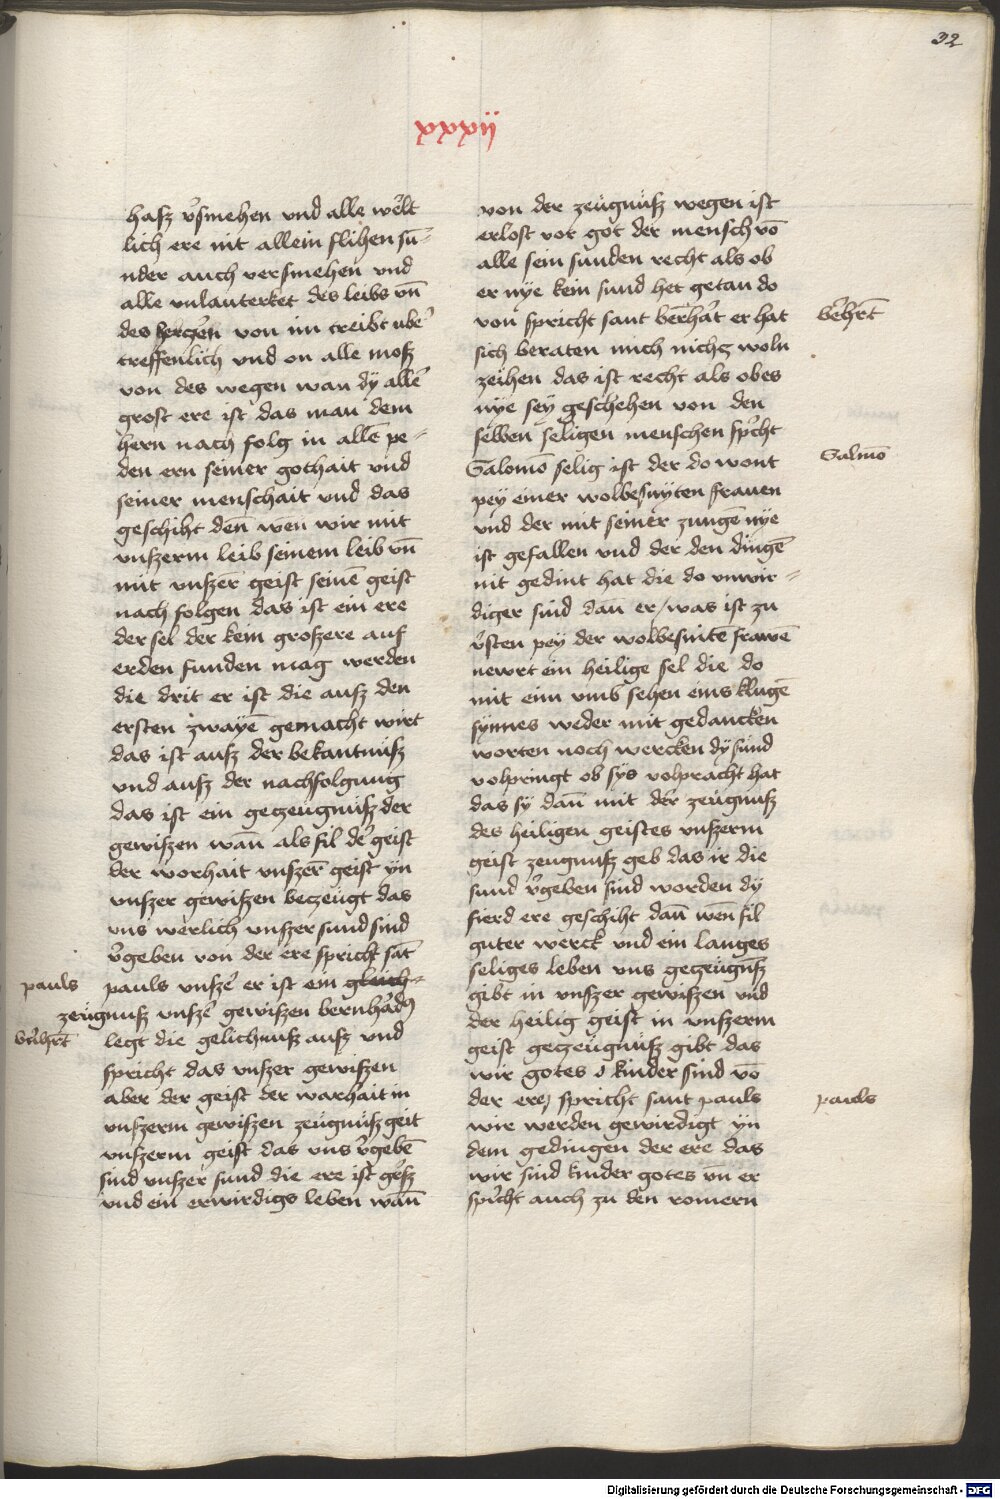 32
xxxij
hasz v̓smehen vnd alle we̓lt
lich ere nit allein flihen sū=
nder auch versmehen vnd
alle vnlauterket des leibs vn̄
des herczen von im treibt vbe̓
treffenlich vnd on alle mosz
von des wegen wan dÿ alle̅
grost ere ist das man dem
hern nach folg in alle̅ pe=
den ern seiner gothait vnd
seiner menschait vnd das
geschiht den wen wir mit
vnszerm leib seinem leib vn̄
mit vnszer geist seine̅ geist
nach folgen das ist ein ere
der sel der kein groszere auf
erden funden mag werden
die drit er ist die ausz den
ersten zwaÿe̅ gemacht wirt
das ist ausz der bekantnusz
vnd ausz der nachfolgung
das ist ein geczeugnusz der
gewiszen wan̄ als fil de̓ geist
der worhait vnszer̅ geist ÿn
vnszer gewiszen beczeugt das
vns werlich vnszer sund sind
v̓geben von der ere spricht sāt
pauls
pauls vnsze̓ er ist ein gleich=
zeugnusz vnsze̓ gewiszen bernha̓dꝰ
be̓nhe̅t
legt die gelichnusz ausz vnd
spricht das vnszer gewiszen
aber der geist der warhait in
vnszerm gewiszen zeugnusz geit
vnszerm geist das vns v̓gebe̅
sind vnszer sund die ere ist gro̓sz
vnd ein erwirdigs leben wan̄
von der zeugnusz wegen ist
erlost vor got der mensch vō
alle sein sunden recht als ob
er nÿe kein sund het getan do
von spricht sant be̅rha̓t er hat
be̓hr̅t
sich beraten mich nichcz woln
zeihen das ist recht als obes
nÿe seÿ geschehen von den
selben seligen menschen sp̓cht
Salomō selig ist der do wont
Salmō
peÿ einer wolbesnÿten frauen
vnd der mit seiner zunge̅ nÿe
ist gefallen vnd der den dinge̅
nit gedint hat die do vnwir=
diger sind dan̄ er / was ist zu
v̓sten peÿ der wolbesinte̅ frawe̅
newrt ein heilige sel die do
mit eim vmb sehen eins kluge̅
sÿnnes weder mit gedancken
worten noch wercken dÿ sund
volpringt ob sÿs volpracht hat
das sÿ dan̄ mit der zeugnusz
des heiligen geistes vnszerm
geist zeugnusz geb das ir die
sund v̓geben sind worden dÿ
fierd ere geschiht dan̄ wen̄ fil
guter werck vnd ein langes
seliges leben vns geczeugn̄sz
gibt in vnszer gewiszen vnd
der heilig geist in vnszerm
geist geczeugnusz gibt das
wir gotes kinder sind vō
der ere / spricht sant pauls
pauls
wir werden gewirdigt ÿn
dem gedingen der ere das
wir sind kinder gotes vn̄ er
sp̓icht auch zu den romern
Digitalisierung gefördert durch die Deutsche Forschungsgemeinschaft - DFG